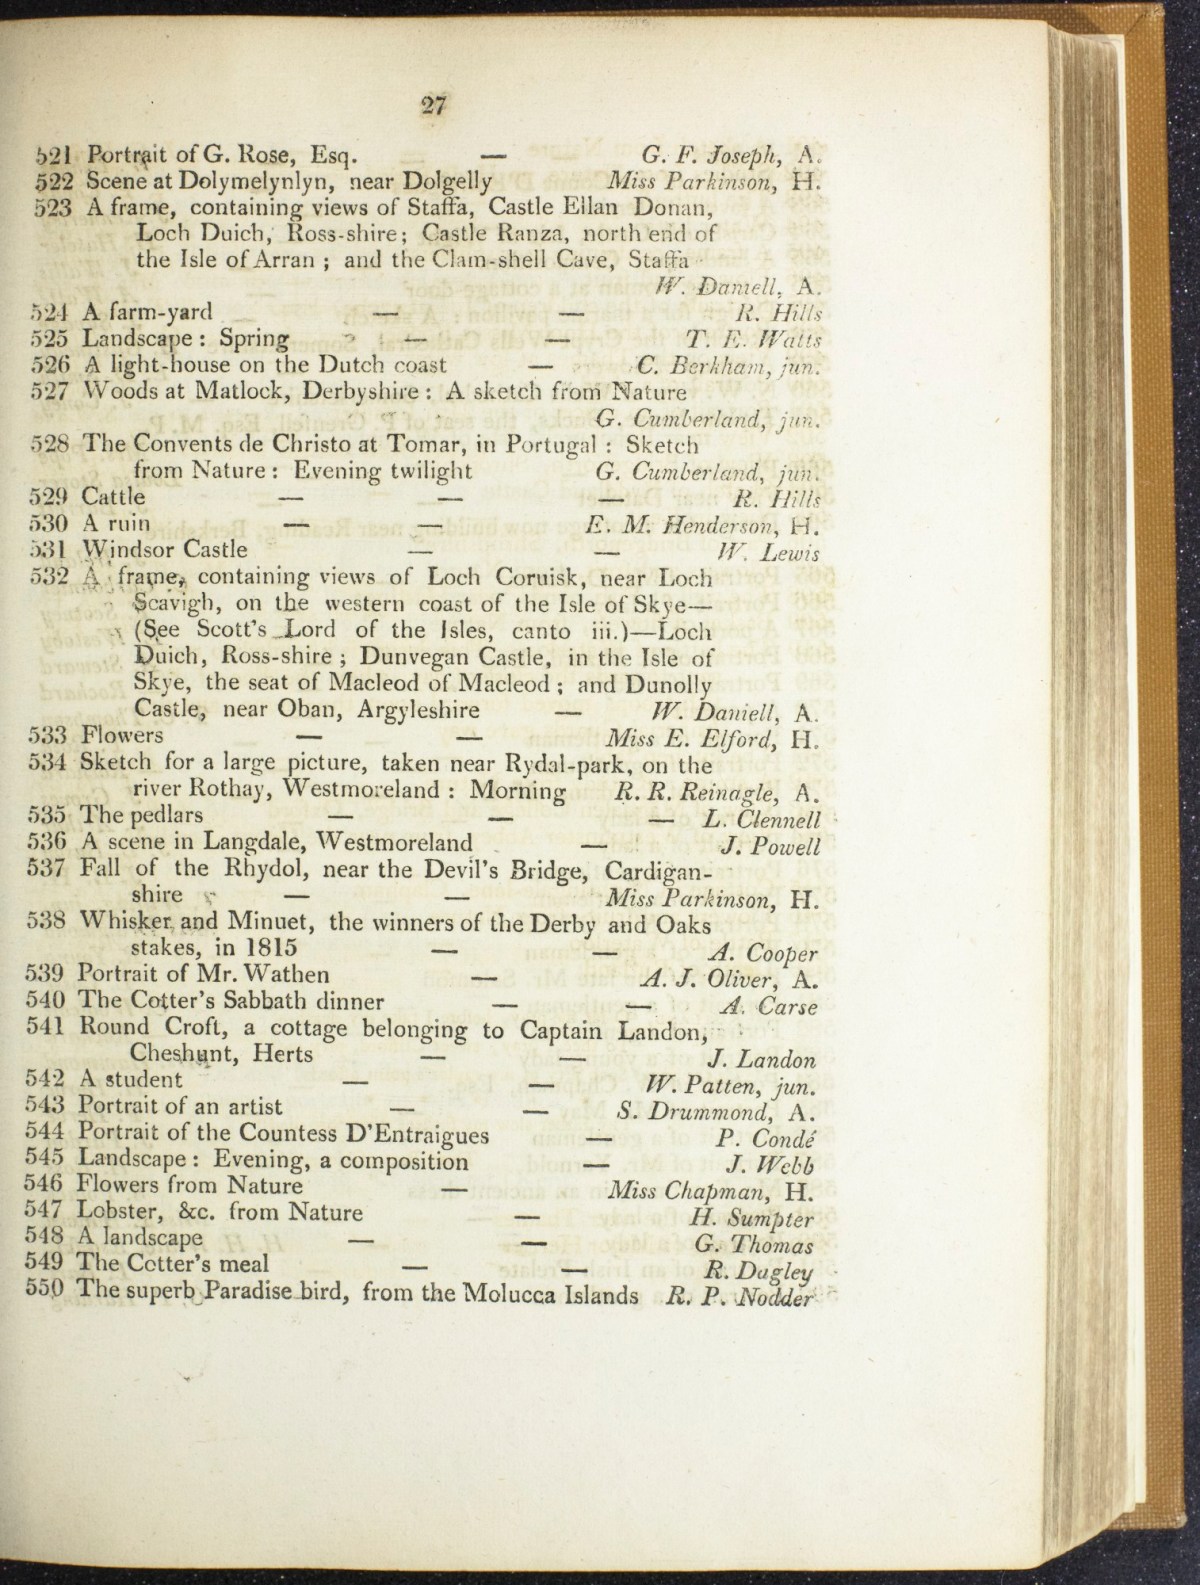 27
521 Portrait of G. Rose, Esq. — G. F. Joseph, A.
522 Scene at Dolymelynlyn, near Dolgelly Miss Parkinson, H.
523 A frame, containing views of Staffa, Castle Ellan Donan,
Loch Duich, Ross-shire; Castle Ranza, north end of
the Isle of Arran ; and the Clam-shell Cave, Staffa
W. Daniell, A.
524 A farm-yard — — R. Hills
525 Landscape : Spring — — T. E. Watts
526 A light-house on the Dutch coast — C. Berkham, jun.
527 Woods at Matlock, Derbyshire : A sketch from Nature
G. Cumberland, jun.
528 The Convents de Christo at Tomar, in Portugal : Sketch
from Nature : Evening twilight G. Cumberland, jun.
529 Cattle — — — R. Hills
530 A ruin — — E. M. Henderson, H.
531 Windsor Castle — — W. Lewis
532 A frame, containing views of Loch Coruisk, near Loch
Scavigh, on the western coast of the Isle of Skye—
(See Scott's Lord of the Isles, canto iii.)—Loch
Duich, Ross-shire ; Dunvegan Castle, in the Isle of
Skye, the seat of Macleod of Macleod ; and Dunolly
Castle, near Oban, Argyleshire — W. Daniell, A.
533 Flowers — — Miss E. Elford, H.
534 Sketch for a large picture, taken near Rydal-park, on the
river Rothay, Westmoreland : Morning R. R. Reinagle, A.
535 The pedlars — — — L. Clennell
536 A scene in Langdale, Westmoreland — J. Powell
537 Fall of the Rhydol, near the Devil's Bridge, Cardigan-
shire — — Miss Parkinson, H.
538 Whisker and Minuet, the winners of the Derby and Oaks
stakes, in 1815 — — A. Cooper
539 Portrait of Mr. Wathen — A. J. Oliver, A.
540 The Cotter's Sabbath dinner — — A. Carse
541 Round Croft, a cottage belonging to Captain Landon,
Cheshunt, Herts — — J. Landon
542 A student — — W. Patten, jun.
543 Portrait of an artist — — S. Drummond, A.
544 Portrait of the Countess D'Entraigues — P. Condé
545 Landscape : Evening, a composition — J. Webb
546 Flowers from Nature — Miss Chapman, H.
547 Lobster, &c. from Nature — H. Sumpter
548 A landscape — — G. Thomas
549 The Cotter's meal — — R. Dagley
550 The superb Paradise bird, from the Molucca Islands R. P. Nodder